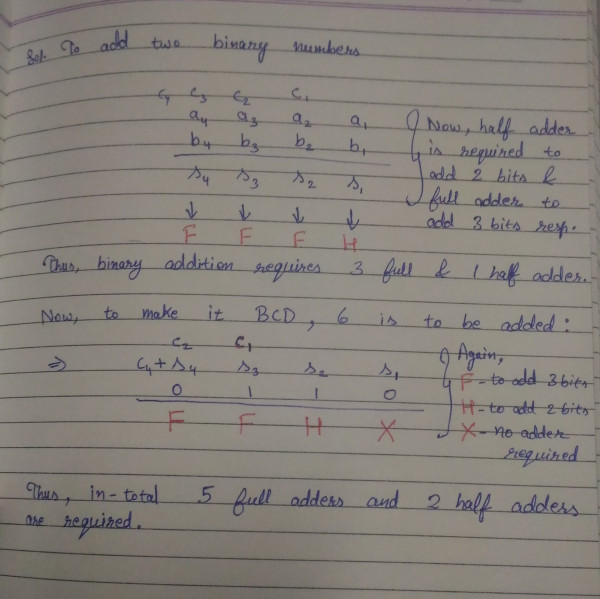 Sol. To add two binary numbers
C4 C3 C2 C1
a4 a3 a2 a1
b4 b3 b2 b1
s4 s3 s2 s1
↓ ↓ ↓ ↓
F F F H
Now, half adder
is required to
add 2 bits &
full adder to
add 3 bits resp.
Thus, binary addition requires 3 full & 1 half adder.
Now, to make it BCD, 6 is to be added:
C2 C1
⇒ C4+s4 s3 s2 s1
0 1 1 0
F F H X
Again,
F - to add 3 bits
H - to add 2 bits
X - no adder
required
Thus, in-total 5 full adders and 2 half adders
are required.